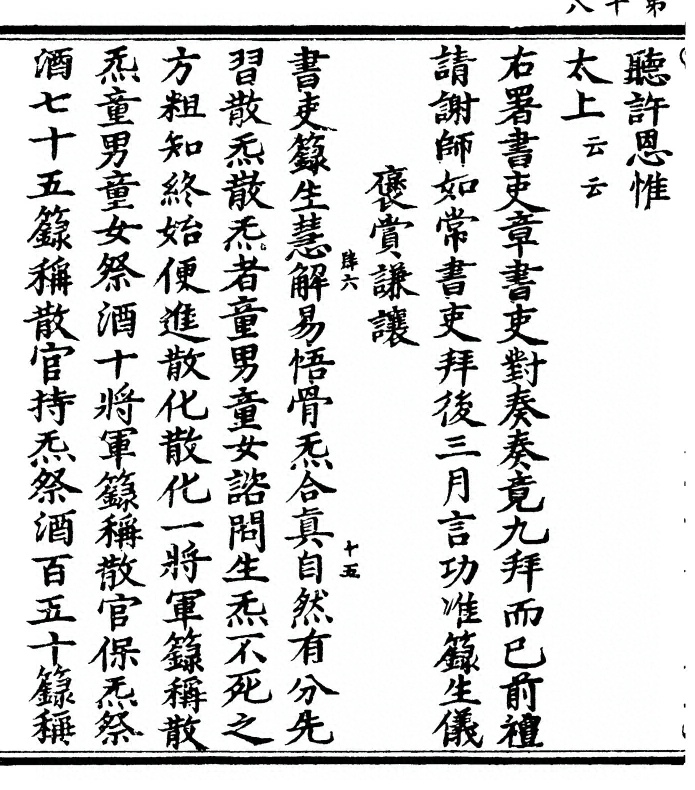 第十八
聽許恩惟
太上云云
右署書吏章書吏對奏奏竟九拜而已前禮
請謝師如常書吏拜後三月言功准籙生儀
褒賞謙讓
肆六
十五
書吏籙生慧解易悟骨炁合真自然有分先
習散炁散炁者童男童女諮問生炁不死之
方粗知終始便進散化散化一將軍籙稱散
炁童男童女祭酒十將軍籙稱散官保炁祭
酒七十五籙稱散官持炁祭酒百五十籙稱